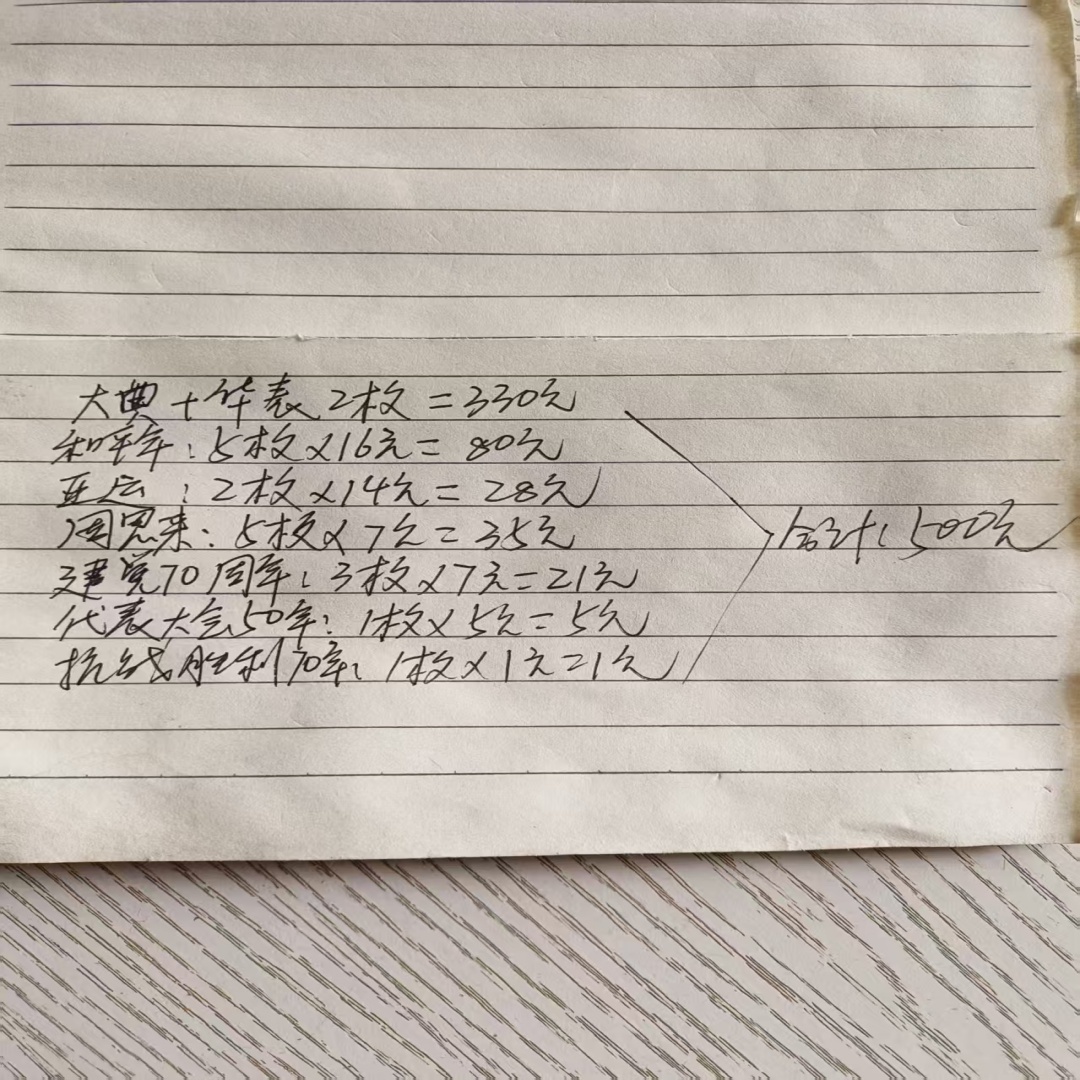 大典+华表2枚=330元
和平年:5枚×16元=80元
亚运:2枚×14元=28元
周恩来:5枚×7元=35元
建党70周年:3枚×7元=21元
代表大会50年:1枚×5元=5元
抗战胜利70年:1枚×1元=1元
合计:500元